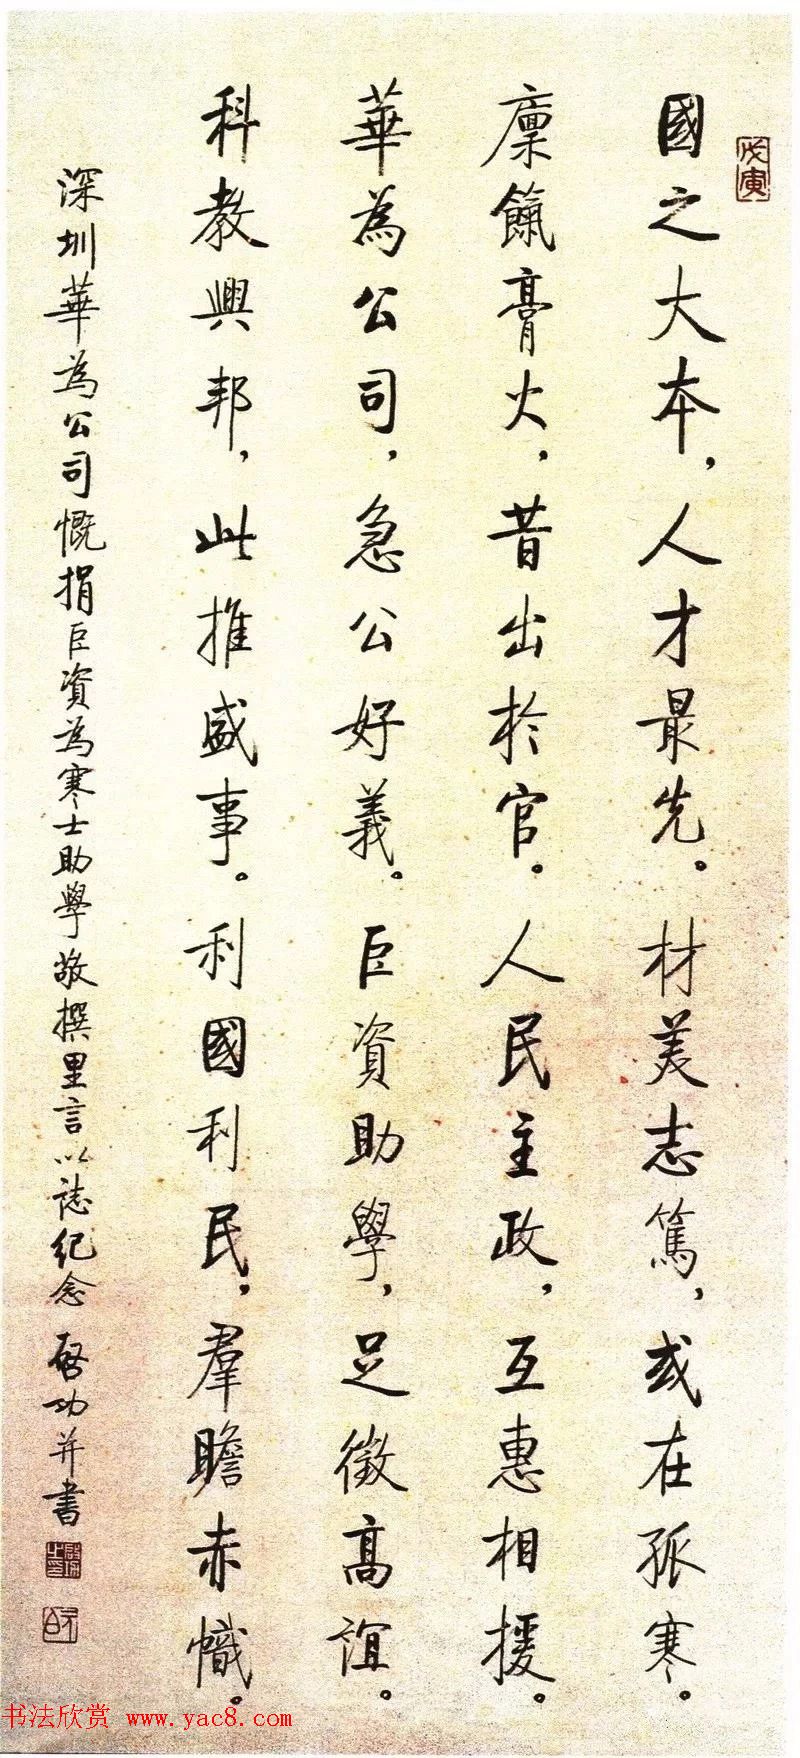 戊寅
國之大本，人才最先。材美志篤，或在孤寒。
廩餼膏火，昔出於官。人民主政，互惠相援。
華為公司，急公好義。巨資助學，足徵高誼。
科教興邦，此推盛事。利國利民，羣瞻赤幟。
深圳華為公司慨捐巨資為寒士助學敬撰里言以誌紀念 啓功并書
书法欣赏 www.yac8.com